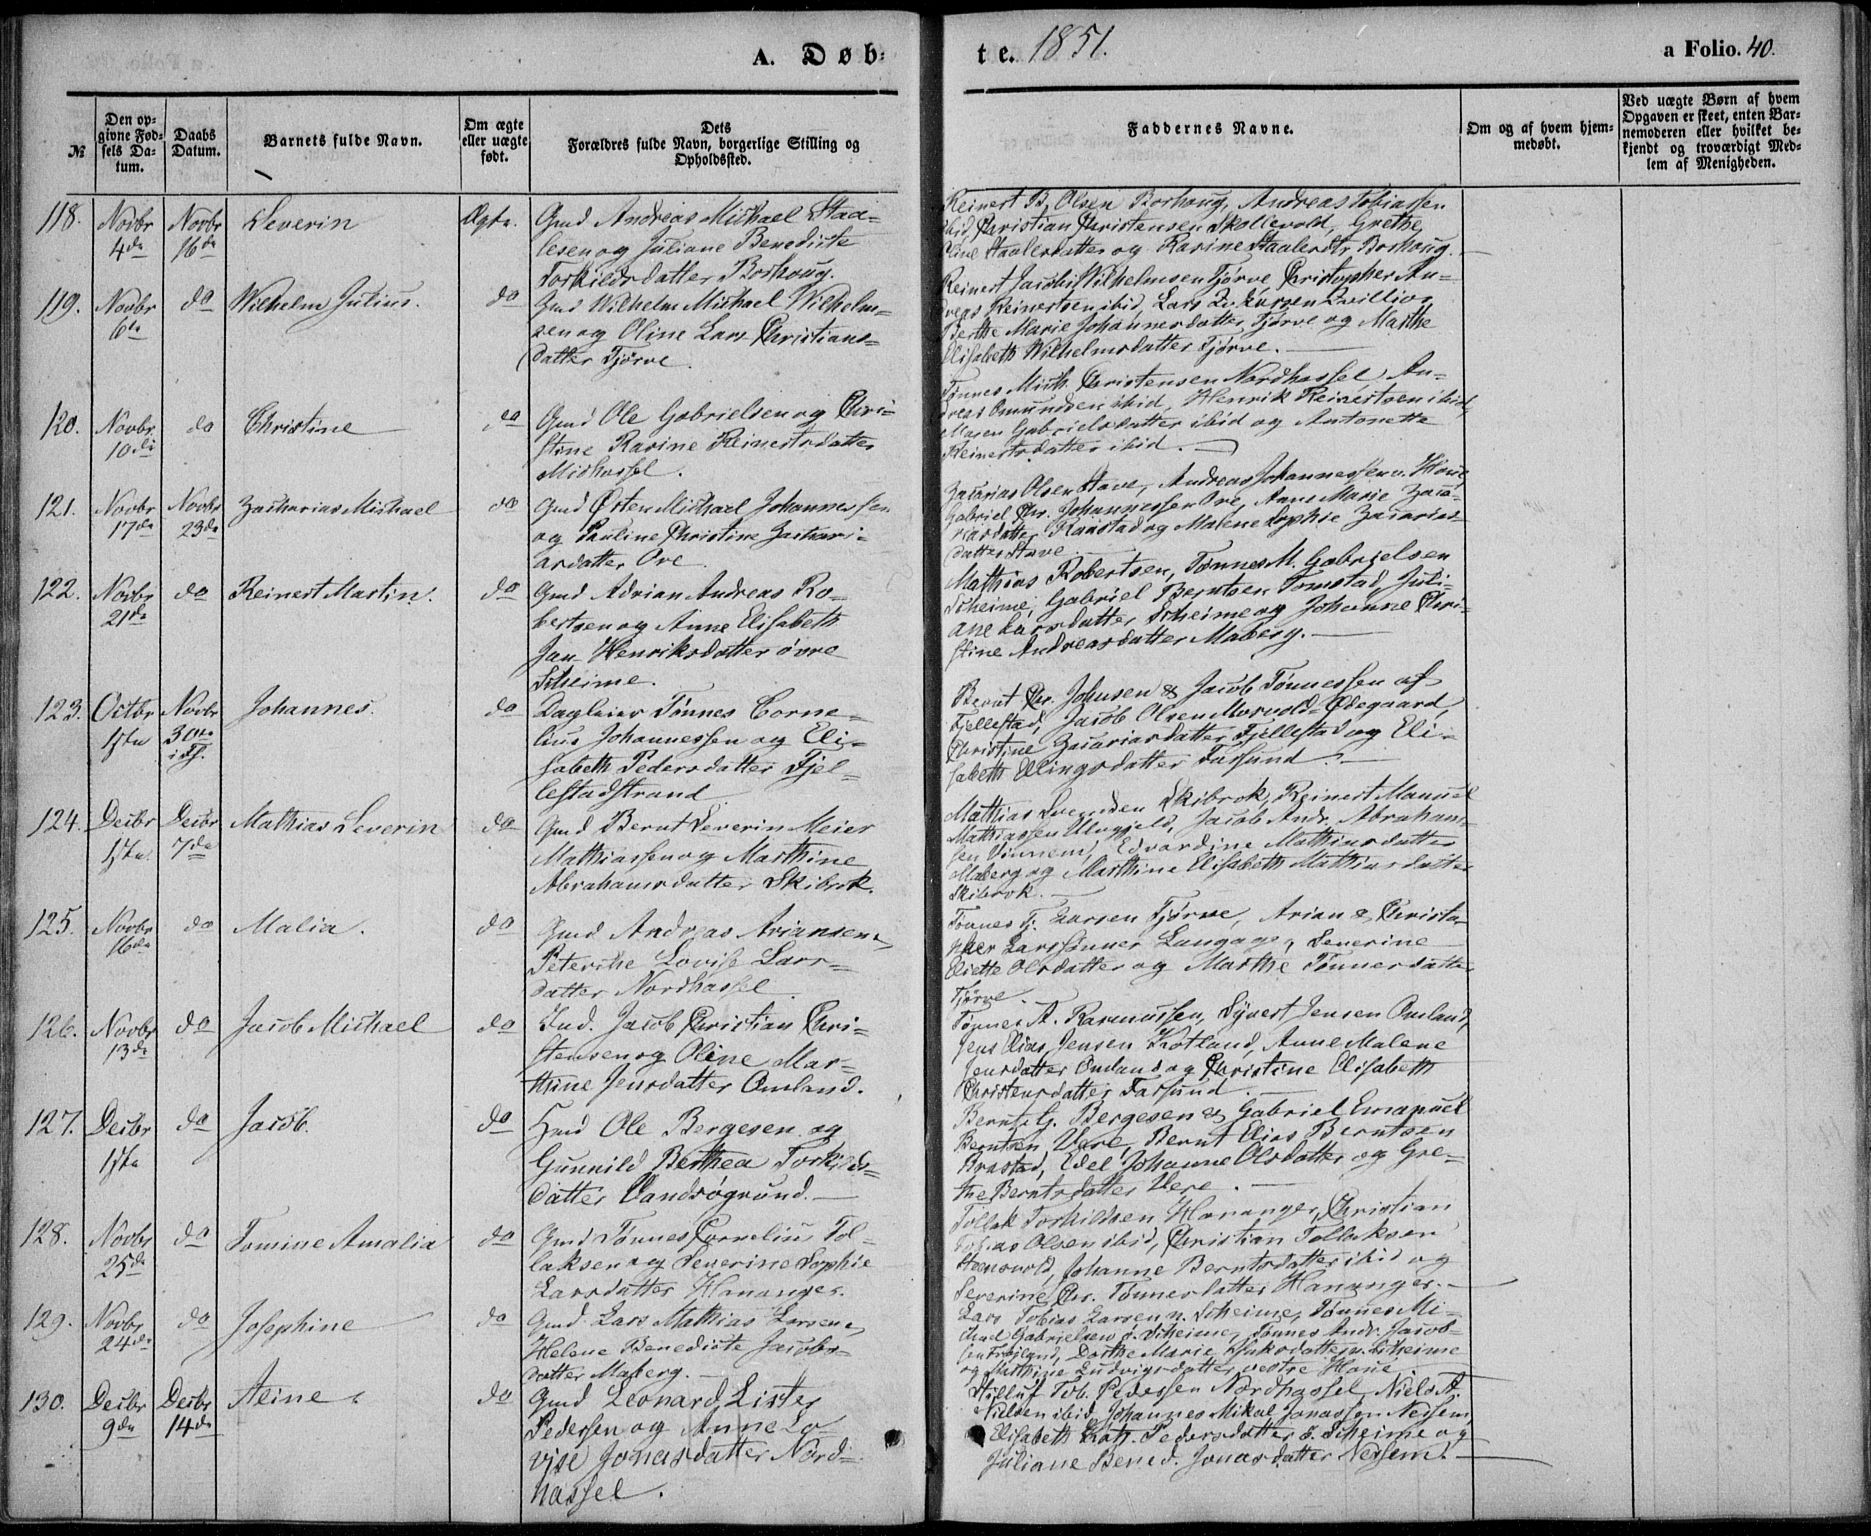 A. Døb-
te. 1851.
a Folio. 40.
№
Den op-
givne Fød-
sels Da-
tum.
Daabs
Datum.
Barnets fulde Navn.
Om ægte
eller uægte
født.
Dets
Forældres fulde Navn, borgerlige Stilling og
Opholdssted.
Faddernes Navne.
Om og af hvem hjem-
medøbt.
Ved uægte Børn af hvem
Opgaven er skeet, enten Bar-
nemoderen eller hvilket be-
kjendt og troværdigt Med-
lem af Menigheden.
118.
Novbr
4de
Novbr
16de
Severin
Ægte.
Gmd Andreas Michael Staa-
lesen og Juliane Benedicte
Torkildsdatter Borhoug.
Reinert B. Olsen Borhoug, Andreas Tobiassen
ibid Christian Christensen Skollevold, Grethe
Staalesdatter og Karine Staalesdtr Borhoug.
119.
Novbr
6te
do
Wilhelm Julius.
do
Gmd Wilhelm Michael Wilhelm-
sen og Oline Lars Christians-
datter Tjørve.
Reinert Jacobs Wilhelmsen Tjørve, Christopher An-
dreas Reinertsen ibid, Lars Larsen
Berthe Marie Johannesdatter Tjørve og Marthe
Elisabeth Wilhelmsdatter Tjørve.
120.
Novbr
10de
do
Christine
do
Gmd Ole Gabrielsen og Chri-
stine Karine Reinertsdatter
Midhassel.
Tønnes Mich. Christensen Nordhassel, An-
dreas Omundsen ibid, Henrik Reinertsen ibid,
Maren Gabrielsdatter ibid og Antonette
Reinertsdatter ibid.
121.
Novbr
17de
Novbr
23de
Zacharias Michael
do
Gmd Østen Michael Johannessen
og Pauline Christine Zachari-
asdatter Ore.
Zacarias Olsen Stave, Andreas Johannessen v. Haue,
Gabriel Chr. Johannessen Ore, Anne Marie Zaca-
riasdatter Raastad og Malene Sophie Zacarias-
datter Stave
122.
Novbr
21de
do
Reinert Martin.
do
Gmd Adrian Andreas Ro-
bertsen og Anne Elisabeth
Jan Henriksdatter øvre
Scheime.
Mathias Robertsen, Tønnes M. Gabrielsen
Scheime, Gabriel Berntsen Tomstad, Juli-
ane Larsdatter Scheime og Johanne Chri-
stine Andreasdatter Maberg.
123.
Octbr
1ste
Novbr
30te
i Fs.
Johannes.
do
Dagleier Tønnes Corne-
lius Johannessen og Eli-
sabeth Pedersdatter Fjel-
lestadstrand
Bernt Chr. Johnsen & Jacob Tønnessen af
Fjellestad, Jacob Olsen Morvold-Ødegaard,
Christine Zacariasdatter Fjellestad og Eli-
sabeth Ellingsdatter Farsund.
124.
Decbr
1ste
Decbr
7de
Mathias Severin
do
Gmd Bernt Severin Meier
Mathiassen og Marthine
Abrahamsdatter Skibrok.
Mathias Svendsen Skibrok, Reinert Manuel
Mathiassen Ulvgjeld, Jacob Andr. Abraham-
sen Vinnem, Edvardine Mathiasdatter
Maberg og Marthine Elisabeth Mathiasdatter
Skibrok.
125.
Novbr
16de
do
Malia.
do
Gmd Andreas Ariansen &
Petrine Lovise Lars-
datter Nordhassel
Tønnes Tj. Larsen Tjørve, Arian & Christo-
pher Larssønner Langage, Severine
Eliette Olsdatter og Marthe Tønnesdatter
Tjørve.
126.
Novbr
13de
do
Jacob Michael
do
Ind. Jacob Christian Chri-
stensen og Oline Mar-
thine Jensdatter Omland.
Tønnes A. Rasmussen, Syvert Jensen Omland,
Jens Elias Jensen Kotland, Anne Malene
Jensdatter Omland og Christine Elisabeth
Christensdatter Farsund.
127.
Decbr
1ste
do
Jacob.
do
Hmd Ole Bergesen og
Gunnild Berthea Torkilds-
datter Vandsøgrund.
Bernt G. Bergesen & Gabriel Emanuel
Berntsen Vere, Bernt Elias Berntsen
Brastad, Edel Johanne Olsdatter og Gre-
the Berntsdatter Vere.
128.
Novbr
25de
do
Tomine Amalia
do
Gmd Tønnes Cornelius Tol-
laksen og Severine Sophie
Larsdatter Hananger.
Tollak Torkildsen Hananger, Christian
Tobias Olsen ibid, Christian Tollaksen
Steensvold, Johanne Berntsdatter ibid og
Severine Chr. Tønnesdatter Hananger.
129.
Novbr
24de
do
Josephine
do
Gmd Lars Mathias Larsen &
Helene Benedicte Jacobs-
datter Maberg.
Lars Tobias Larsen n. Scheime, Tønnes Mi-
chael Gabrielsen ø. Scheime, Tønnes Andr. Jacob-
sen Frøiland, Dorthe Marie datter n. Scheime
og Mathine Ludvigsdatter vestre Haue.
130.
Decbr
9de
Decbr
14de
Aline.
do
Gmd Leonard Lister
Pedersen og Anne Lo-
vise Jonasdatter Nord-
hassel.
Tob. Pedersen Nordhassel, Niels A.
Nielsen ibid, Johannes Mikal Jonassen Nessem,
Elisabeth Cath. Pedersdatter ø. Scheime og
Juliane Bened. Jonasdatter Nessem.